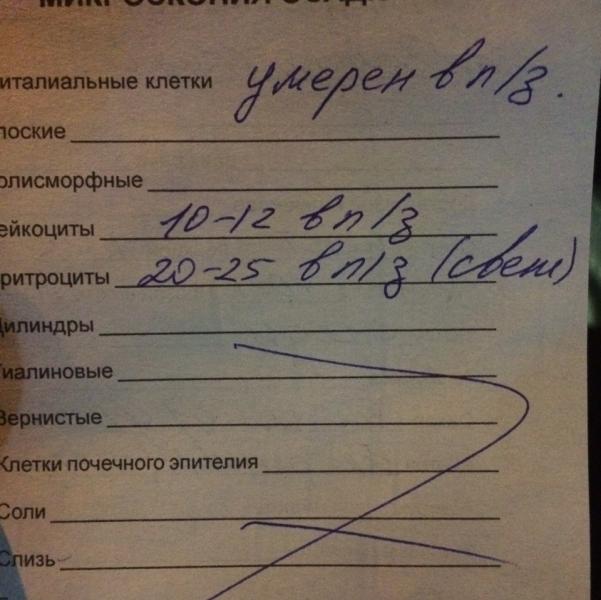 МИКРОСКОПИЯ ОСАД
италиальные клетки умерен в п/з.
лоские
олисморфные
ейкоциты 10-12 в п/з
ритроциты 20-25 в п/з (свеж)
Цилиндры
Гиалиновые
Зернистые
Клетки почечного эпителия
Соли
Слизь